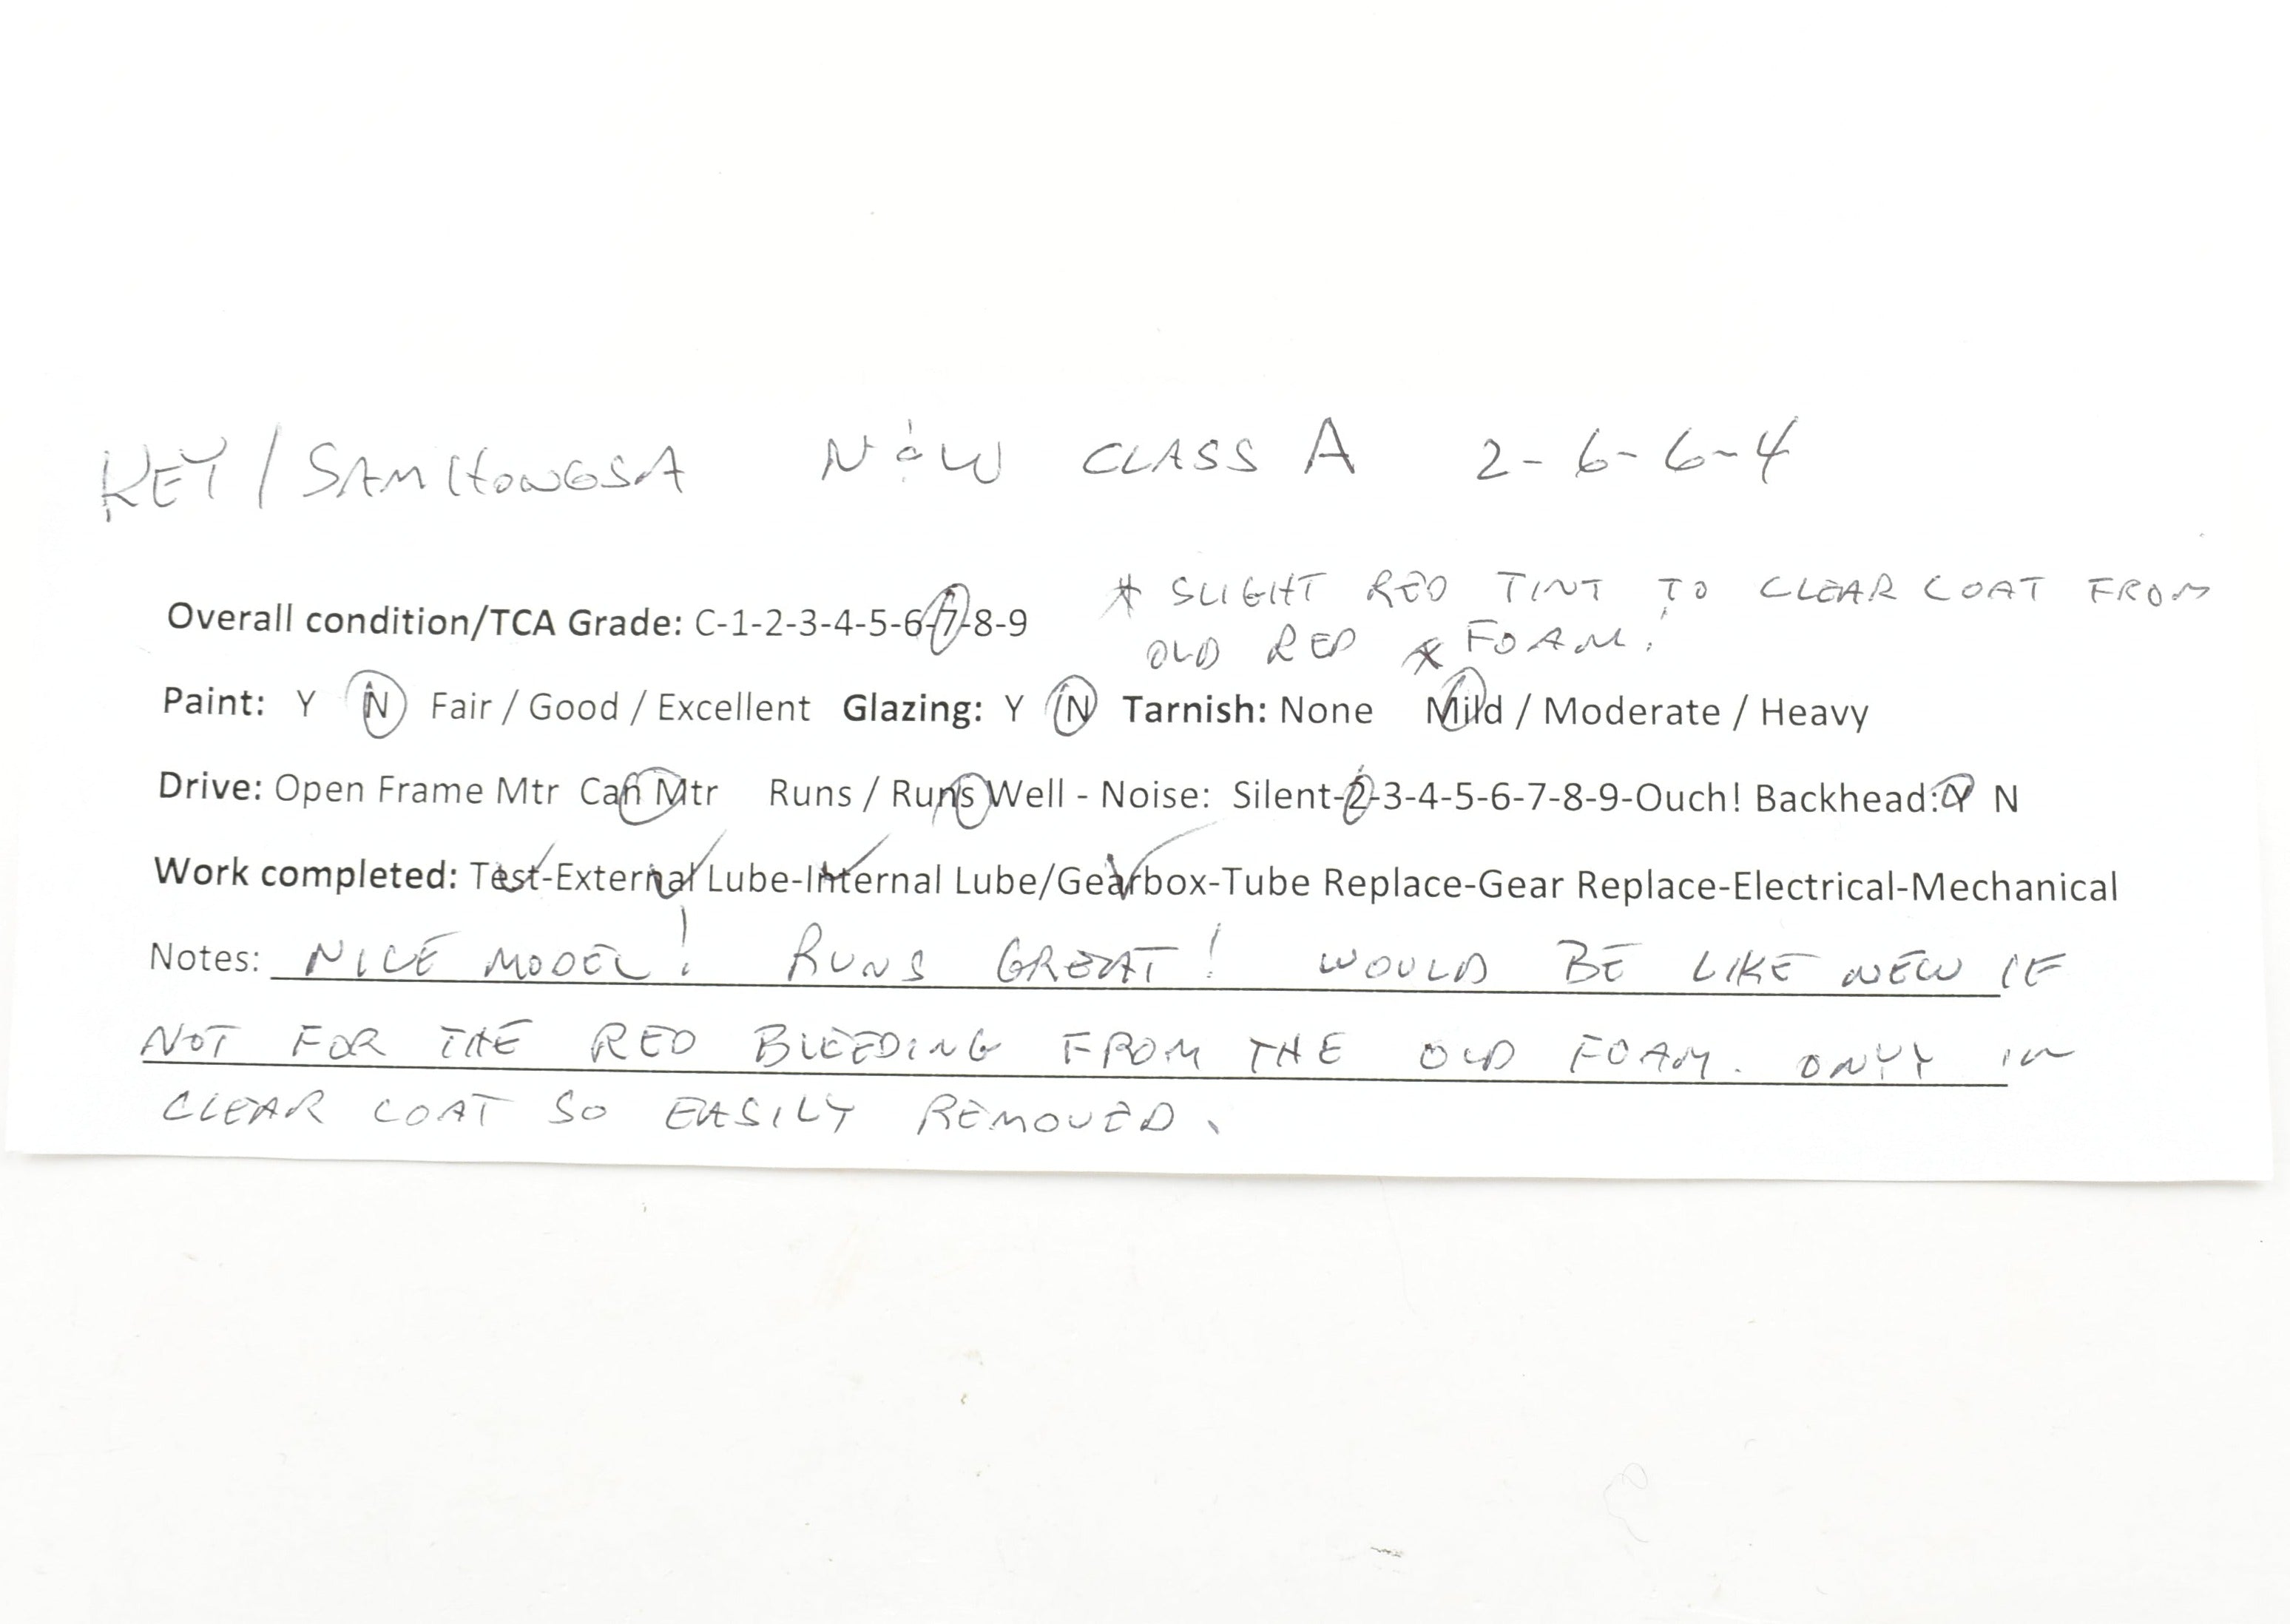 KEY / SAMHONGSA N&W CLASS A 2-6-6-4
* SLIGHT RED TINT TO CLEAR COAT FROM
Overall condition/TCA Grade: C-1-2-3-4-5-6-7-8-9
OLD RED * FOAM.
Paint: Y N Fair / Good / Excellent Glazing: Y N Tarnish: None Mild / Moderate / Heavy
Drive: Open Frame Mtr Can Mtr Runs / Runs Well - Noise: Silent-2-3-4-5-6-7-8-9-Ouch! Backhead: Y N
Work completed: Test-External Lube-Internal Lube/Gearbox-Tube Replace-Gear Replace-Electrical-Mechanical
Notes: NICE MODEL! RUNS GREAT! WOULD BE LIKE NEW IF
NOT FOR THE RED BLEEDING FROM THE OLD FOAM. ONYY IN
CLEAR COAT SO EASILY REMOVED.